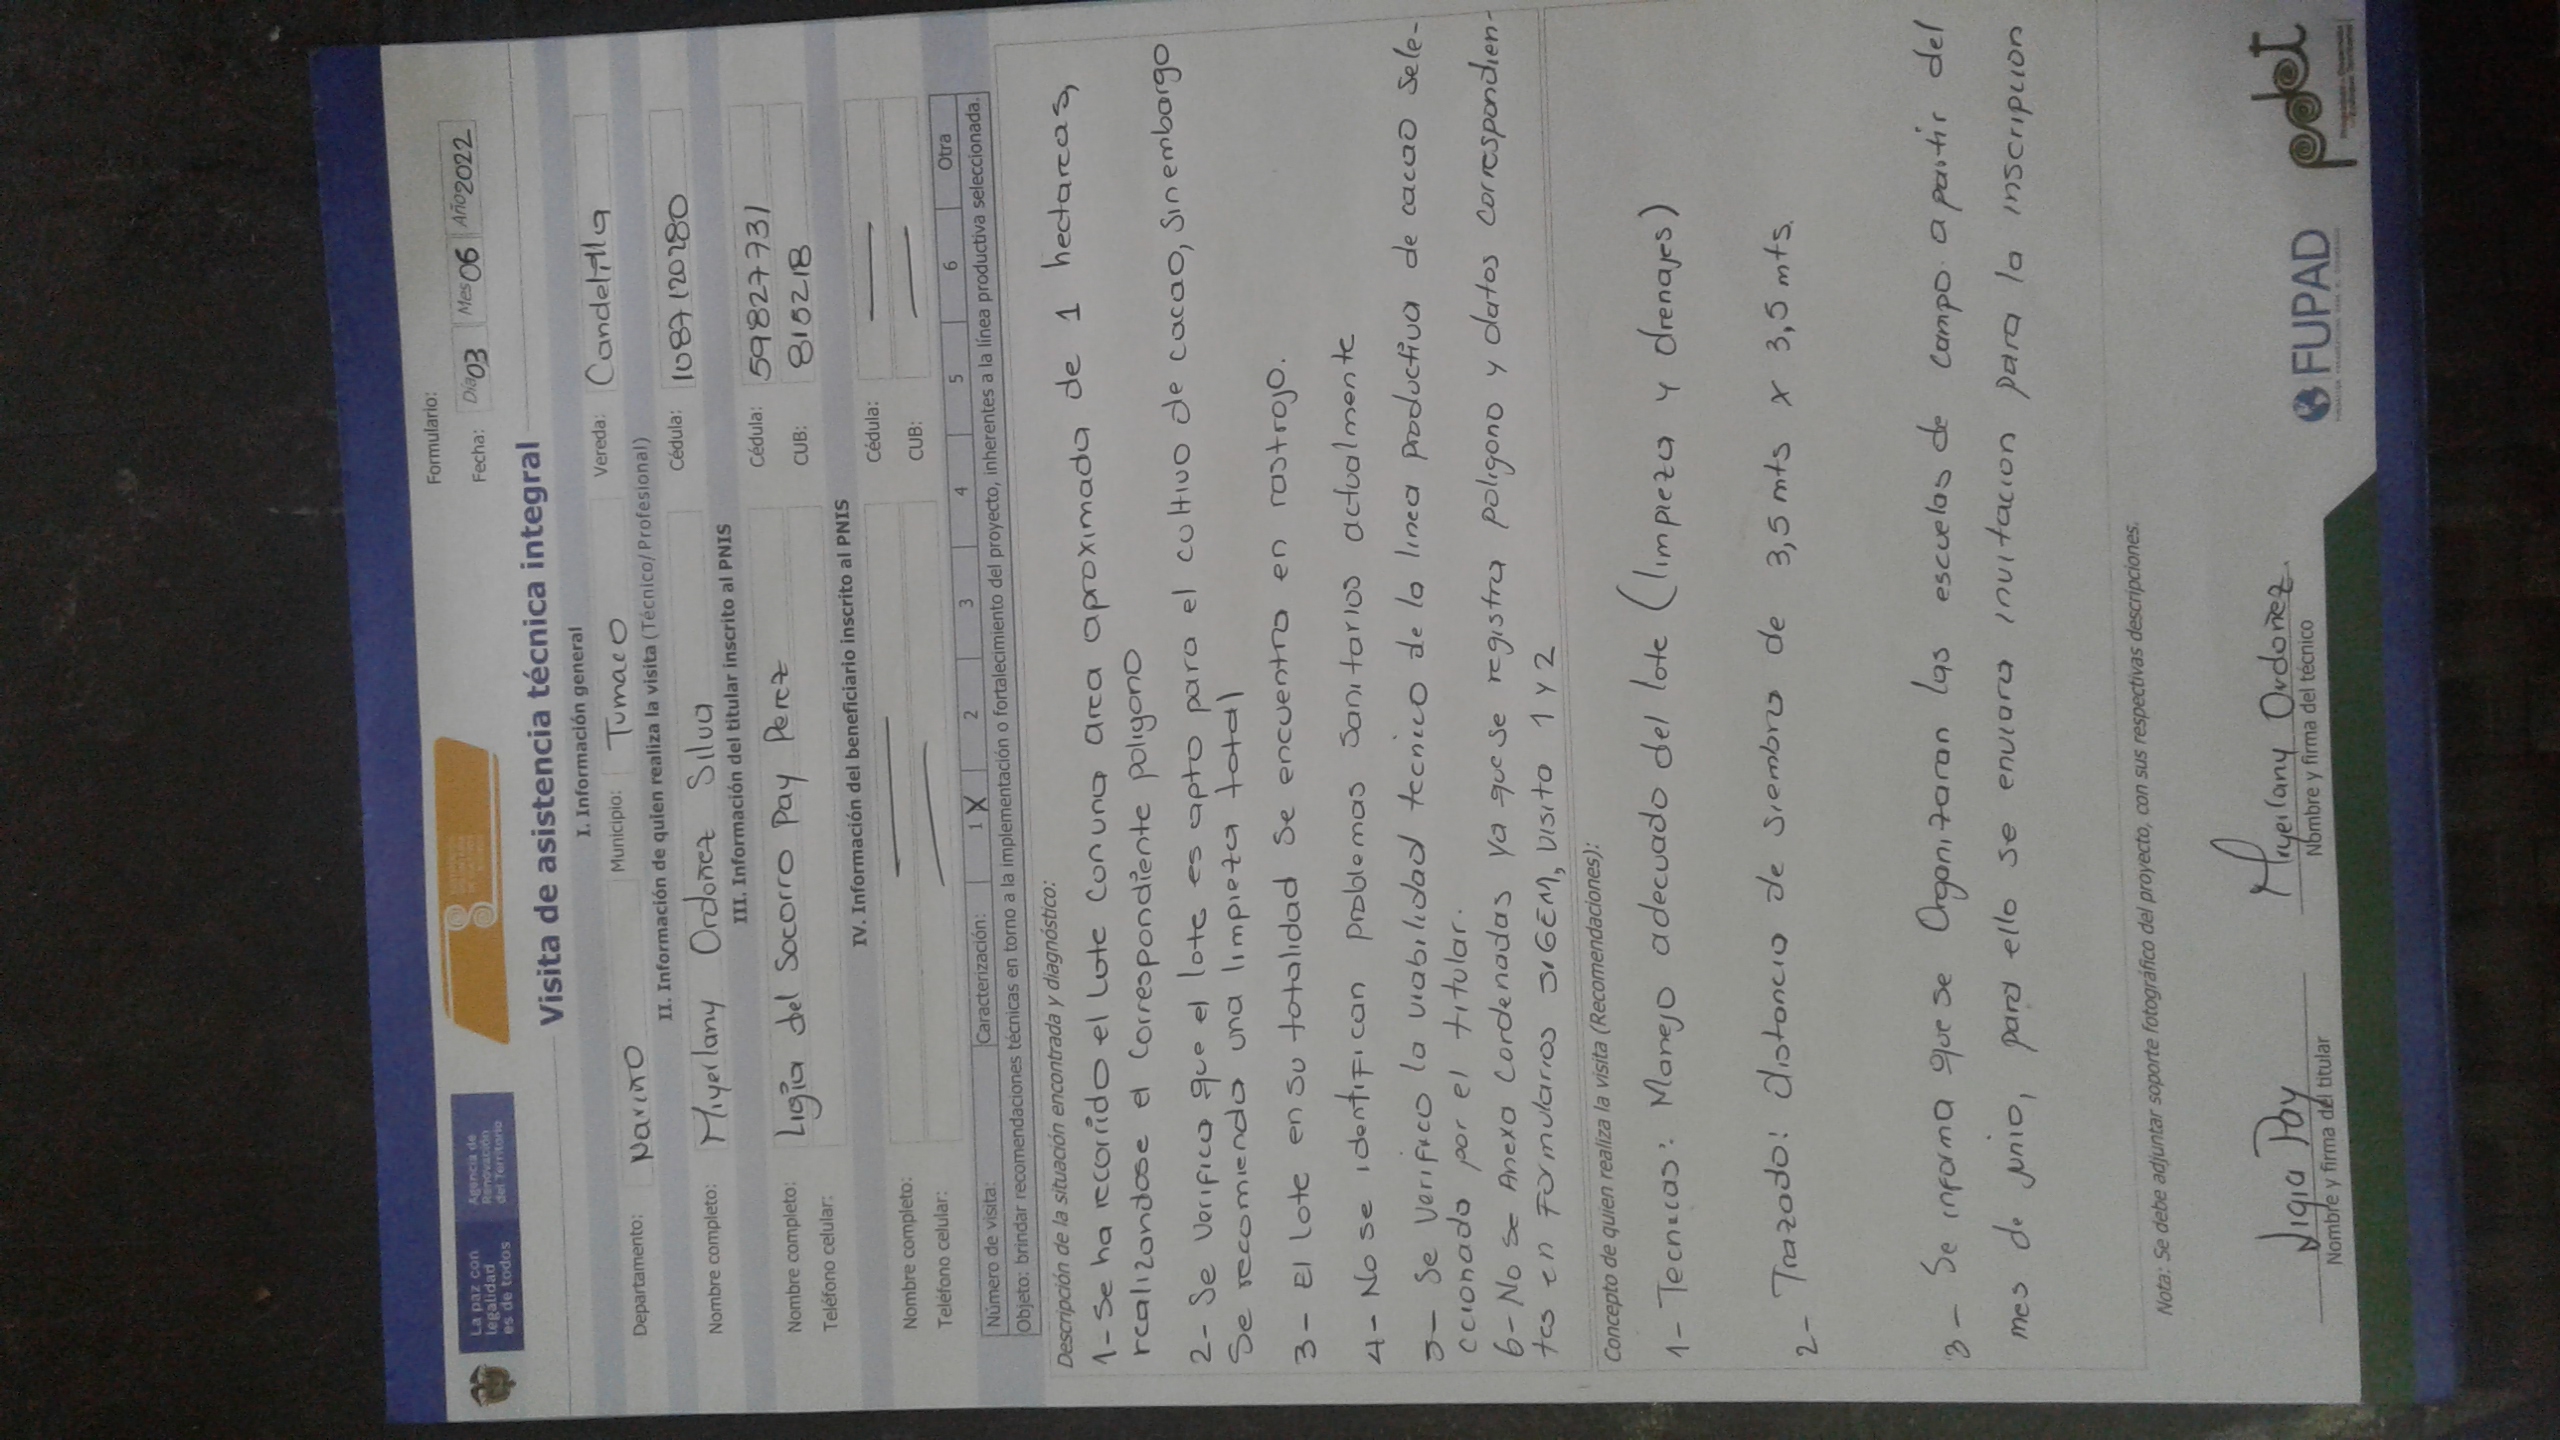 La paz con
legalidad
es de todos
Agencia de
Renovación
del Territorio
Formulario:
Fecha: Día 03 Mes 06 Año 2022
Visita de asistencia técnica integral
I. Información general
Departamento: Nariño Municipio: Tumaco Vereda: Candelilla
II. Información de quien realiza la visita (Técnico/Profesional)
Nombre completo: Miyerlany Ordoñez Silva Cédula: 1087120280
III. Información del titular inscrito al PNIS
Nombre completo: Ligia del Socorro Pay Perez Cédula: 59827731
Teléfono celular: CUB: 8152218
IV. Información del beneficiario inscrito al PNIS
Nombre completo: — Cédula: —
Teléfono celular: — CUB: —
Número de visita: Caracterización: 1 X 2 3 4 5 6 Otra
Objeto: brindar recomendaciones técnicas en torno a la implementación o fortalecimiento del proyecto, inherentes a la línea productiva seleccionada.
Descripción de la situación encontrada y diagnóstico:
1- Se ha recorrido el Lote con una area aproximada de 1 hectareas,
realizandose el correspondiente poligono
2- Se verifico que el lote es apto para el cultivo de cacao, sin embargo
se recomienda una limpieza total
3- El Lote en su totalidad se encuentra en rastrojo.
4- No se identifican problemas sanitarios actualmente
5- Se verifico la viabilidad tecnico de la linea productiva de cacao sele-
ccionado por el titular.
6- No se Anexa Cordenadas ya que se registra poligono y datos correspondien-
tes en Formularios SIGEM, Visita 1 y 2
Concepto de quien realiza la visita (Recomendaciones):
1- Tecnicas: Manejo adecuado del lote (limpieza y drenajes)
2- Trazado: distancia de siembra de 3,5 mts x 3,5 mts.
3- Se informa que se Organizaran las escuelas de campo a partir del
mes de junio, para ello se enviara invitacion para la inscripcion
Nota: Se debe adjuntar soporte fotográfico del proyecto, con sus respectivas descripciones.
Ligia Pay Miyerlany Ordoñez.
Nombre y firma del titular Nombre y firma del técnico
FUPAD
pdet